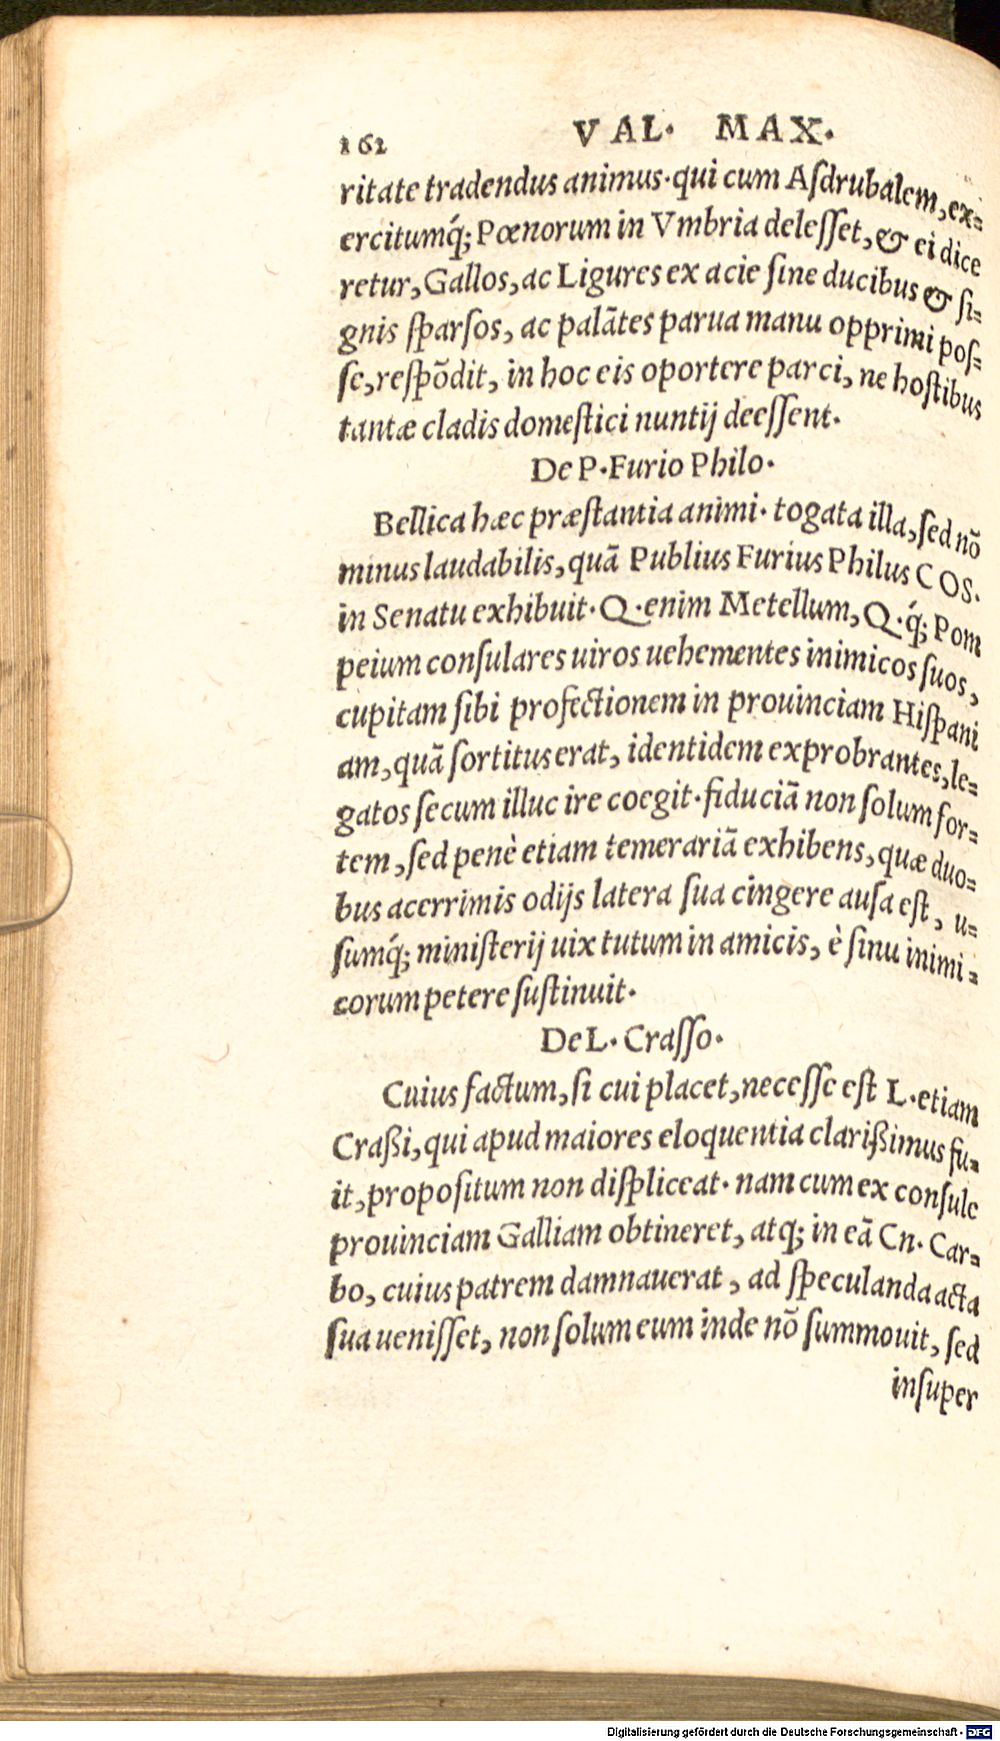 162 VAL. MAX.
ritate tradendus animus. qui cum Aſdrubalem, ex=
ercitumq́; Pœnorum in Vmbria deleſſet, & ei dice
retur, Gallos, ac Ligures ex acie ſine ducibus & ſi=
gnis ſparſos, ac palãtes parua manu opprimi poſ=
ſe, reſpõdit, in hoc eis oportere parci, ne hoſtibus
tantæ cladis domeſtici nuntij deeſſent.
De P. Furio Philo.
Bellica hæc præſtantia animi. togata illa, ſed nõ
minus laudabilis, quã Publius Furius Philus COS.
in Senatu exhibuit. Q. enim Metellum, Q. q́; Pom
peium conſulares uiros uehementes inimicos ſuos,
cupitam ſibi profectionem in prouinciam Hiſpani
am, quã ſortitus erat, identidem exprobrantes, le=
gatos ſecum illuc ire coegit. fiduciã non ſolum for=
tem, ſed penè etiam temerariã exhibens, quæ duo=
bus acerrimis odijs latera ſua cingere auſa eſt, u=
ſumq́; miniſterij uix tutum in amicis, è ſinu inimi=
corum petere ſuſtinuit.
De L. Craſſo.
Cuius factum, ſi cui placet, neceſſe eſt L. etiam
Craßi, qui apud maiores eloquentia clarißimus fu=
it, propoſitum non diſpliceat. nam cum ex conſule
prouinciam Galliam obtineret, atq; in eã Cn. Car=
bo, cuius patrem damnauerat, ad ſpeculanda acta
ſua ueniſſet, non ſolum eum inde nõ ſummouit, ſed
inſuper
Digitalisierung gefördert durch die Deutsche Forschungsgemeinschaft - DFG